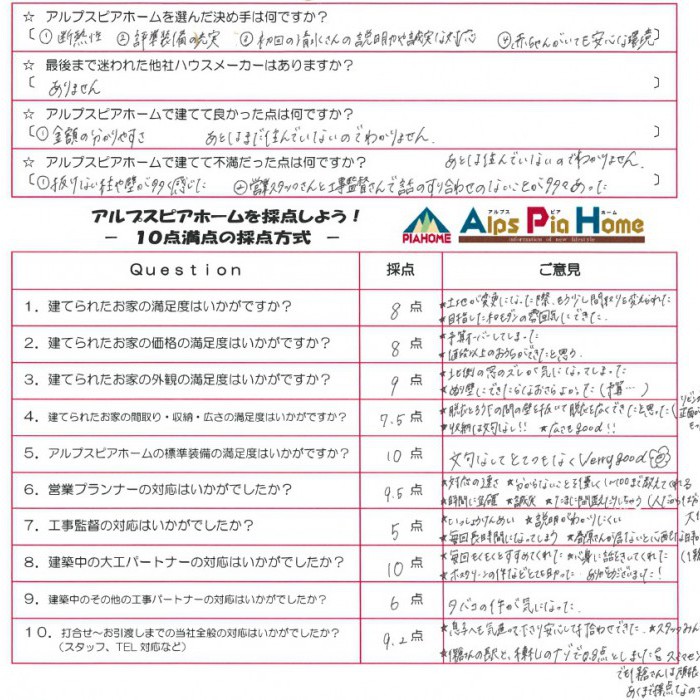 ☆ アルプスピアホームを選んだ決め手は何ですか?
〔① 断熱性 ② 標準装備の充実 ③ 初回の 説明力や誠実な対応 ④ 赤ちゃんがいても安心な環境〕
☆ 最後まで迷われた他社ハウスメーカーはありますか?
〔ありません〕
☆ アルプスピアホームで建てて良かった点は何ですか?
〔① 金額の分かりやすさ あとはまだ住んでいないのでわかりません.〕
☆ アルプスピアホームで建てて不満だった点は何ですか? あとは住んでいないのでわかりません.
〔① 抜けない柱や壁が多く感じた ② 営業スタッフさんと工事監督さんで話のすり合わせのないことが多々あった〕
アルプスピアホームを採点しよう!
- 10点満点の採点方式 -
PIAHOME
アルプス ピア ホーム
Alps Pia Home
Question 採点 ご意見
1. 建てられたお家の満足度はいかがですか? 8 点
★土地が変更になった際、もう少し間取りを変えられた
★目指した和モダンの雰囲気にできた.
2. 建てられたお家の価格の満足度はいかがですか? 8 点
★予算オーバーしてしまった
★価格以上のおうちができたと思う.
3. 建てられたお家の外観の満足度はいかがですか? 9 点
★北側の窓のズレが気になってしまった
★ぬり壁にできたらなおさらよかった(予算…)
4. 建てられたお家の間取り・収納・広さの満足度はいかがですか? 7.5 点
★脱衣とろうかの間の壁を抜いて脱衣を広くできたと思った
★収納は文句なし!! ★広さもgood!!
5. アルプスピアホームの標準装備の満足度はいかがですか? 10 点
文句なしでとてつもなくVerry good
6. 営業プランナーの対応はいかがでしたか? 9.5 点
★対応の速さ ★分からないことを優しく1〜100まで教えてくれる
★時間に正確 ★誠実 ★たまに間違えたりしちゃう
7. 工事監督の対応はいかがでしたか? 5 点
★いっしょうけんめい ★説明がわかりにくい
★毎回長時間になってしまう
8. 建築中の大工パートナーの対応はいかがでしたか? 10 点
★毎回もくもくとすすめてくれた ★心身に話をきいてくれた
★ホスクリーンの件などとても助かった ありがとうございました!
9. 建築中のその他の工事パートナーの対応はいかがでしたか? 6 点
タバコの件が気になった.
10. 打合せ〜お引渡しまでの当社全般の対応はいかがでしたか?
(スタッフ、TEL 対応など) 9.2 点
★息子へも気遣って下さり安心して打合わせできた. ★スタッフみん